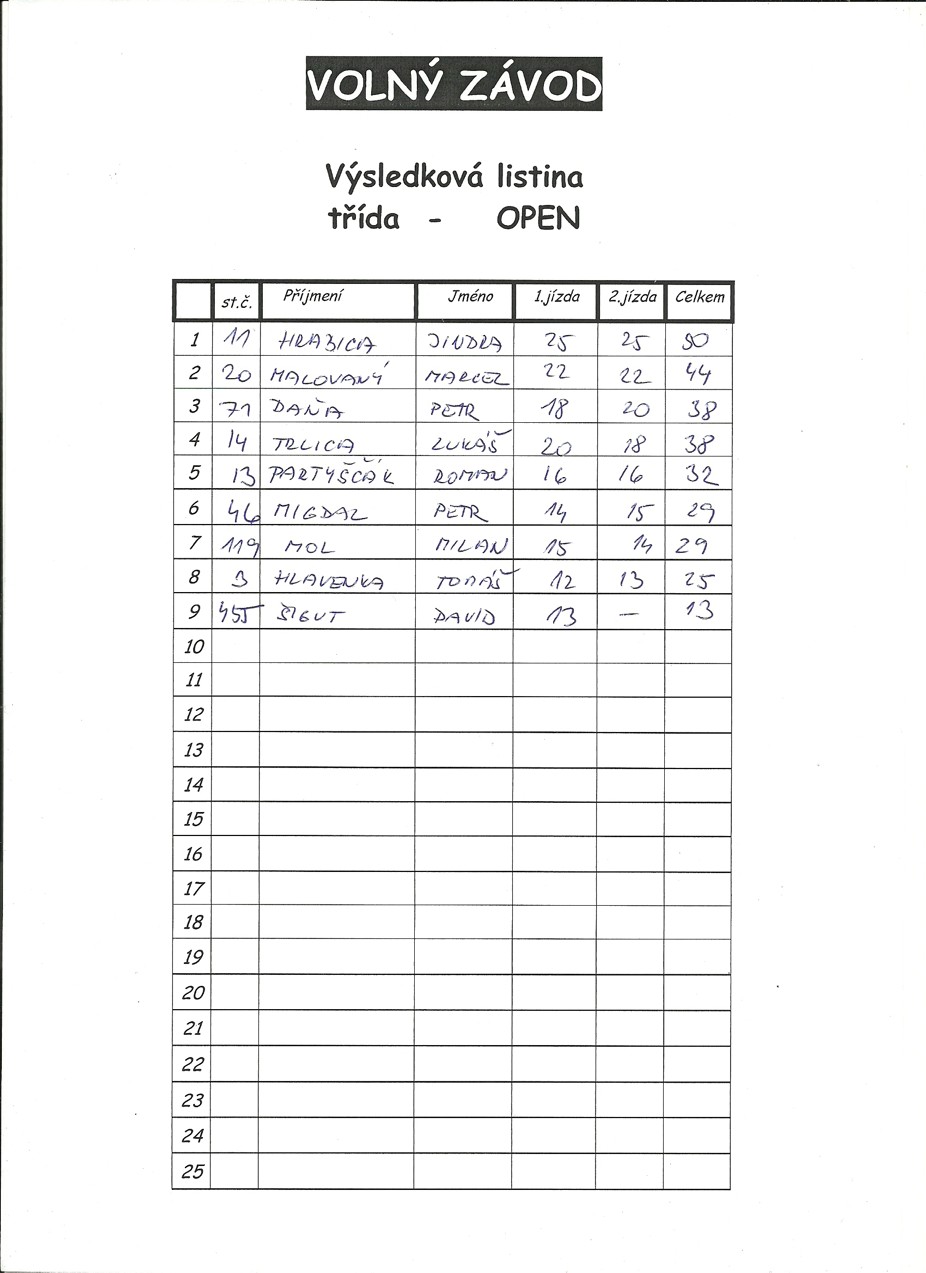 VOLNÝ ZÁVOD
Výsledková listina
třída - OPEN
st.č. Příjmení Jméno 1.jízda 2.jízda Celkem
1 11 HRABICA JINDRA 25 25 50
2 20 MALOVANÝ MARCEL 22 22 44
3 71 DAŇA PETR 18 20 38
4 14 TRLICA LUKÁŠ 20 18 38
5 13 PARTYŠČÁK ROMAN 16 16 32
6 46 MIGDAL PETR 14 15 29
7 119 MOL MILAN 15 14 29
8 3 HLAVENKA TOMÁŠ 12 13 25
9 455 ŠIGUT DAVID 13 — 13
10
11
12
13
14
15
16
17
18
19
20
21
22
23
24
25